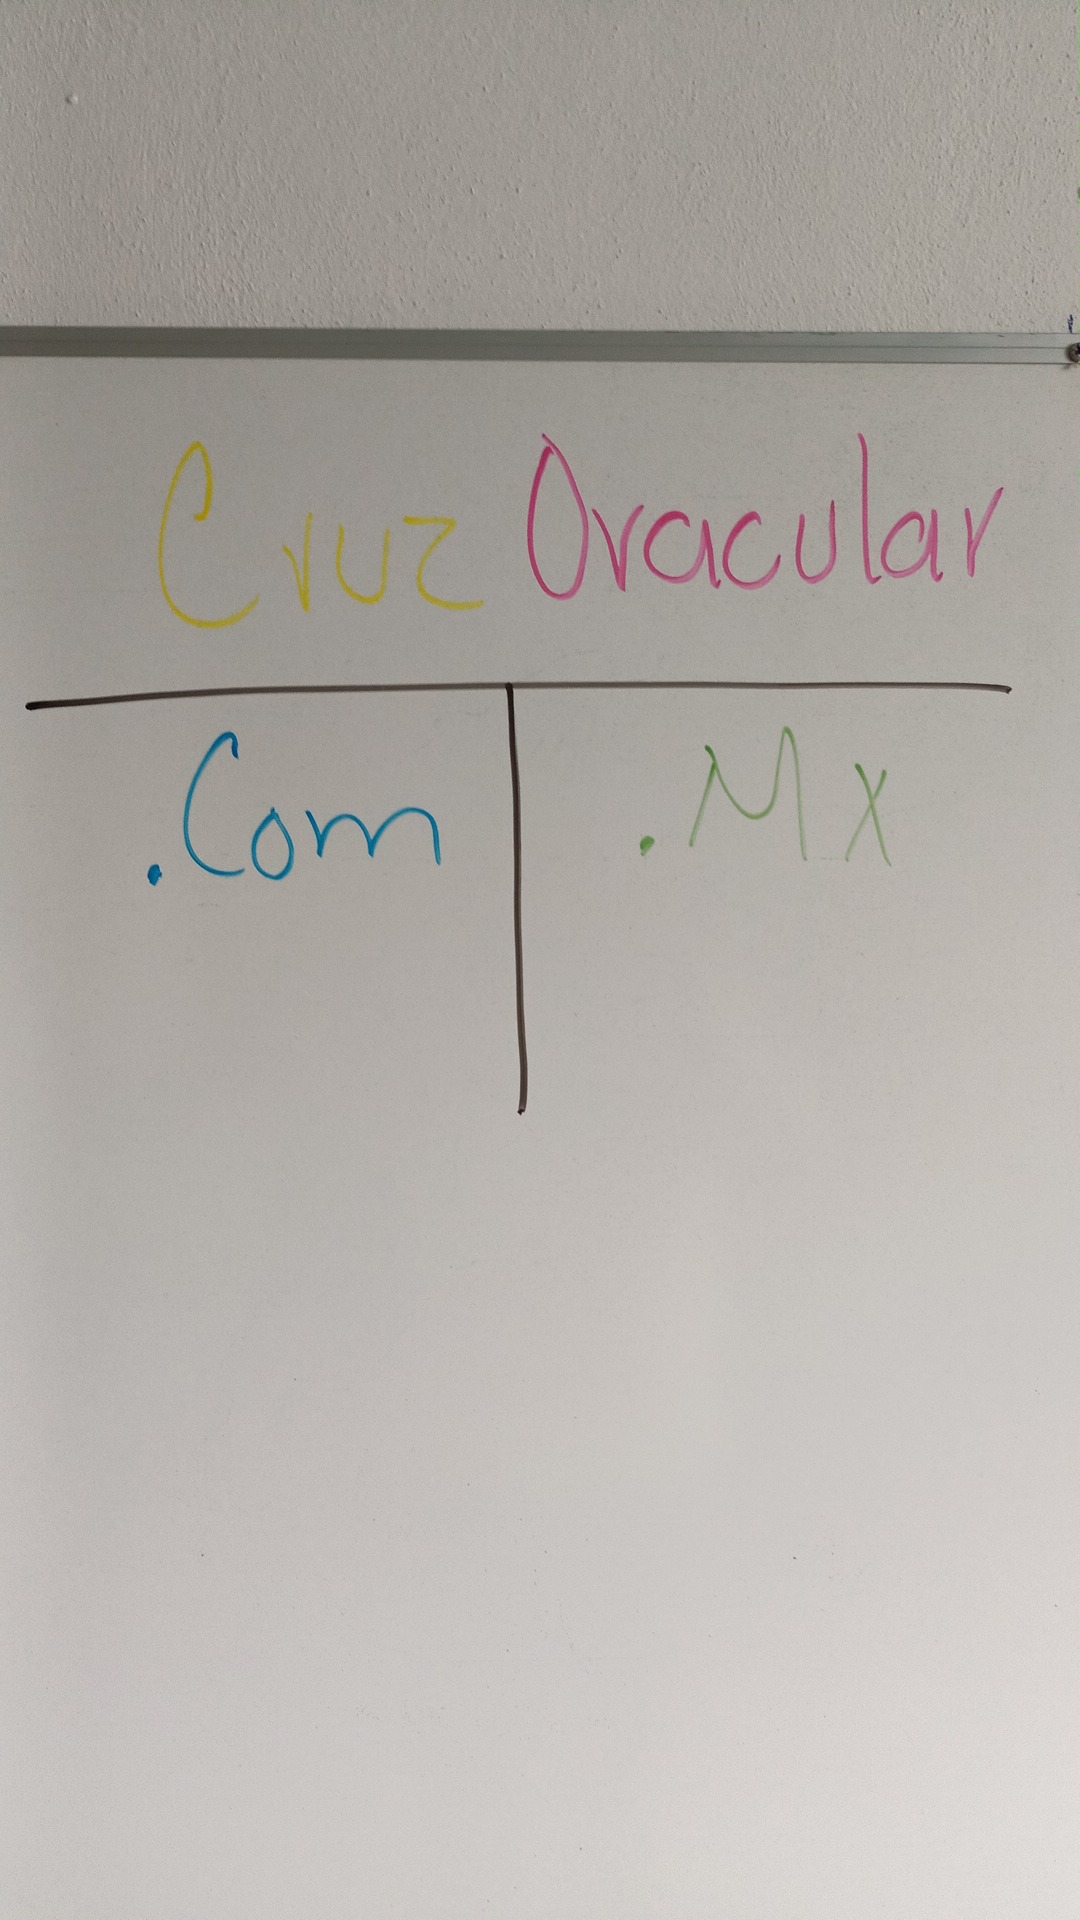 Cruz Oracular
.Com .Mx